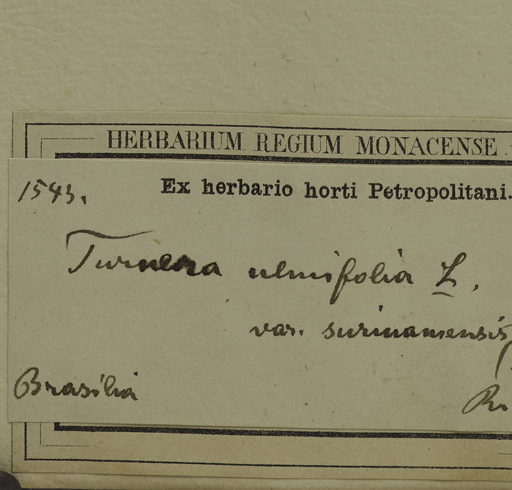 HERBARIUM REGIUM MONACENSE
1543. Ex herbario horti Petropolitani.
Turnera ulmifolia L.
var. surinamensis
Brasilia